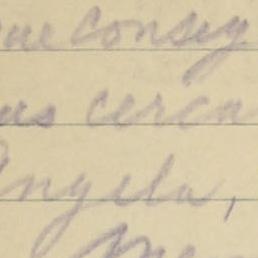 que conseg
us cerca
Angela,